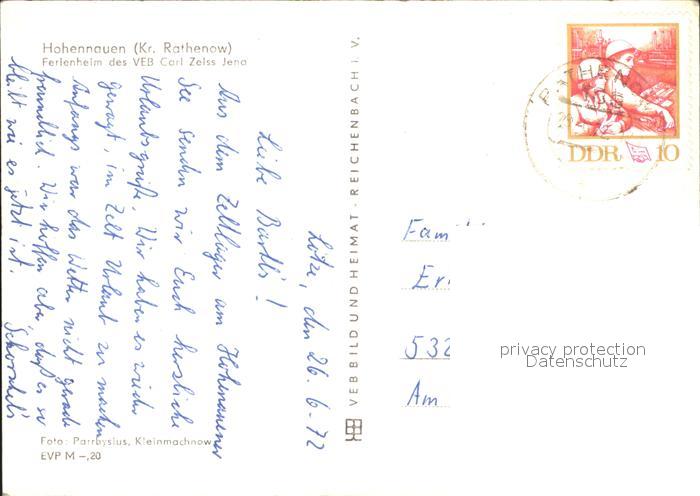 Hohennauen (Kr. Rathenow)
Ferienheim des VEB Carl Zeiss Jena
den 26.6.72
Liebe Bartl's!
Aus dem Zeltlager am Hohennauener
See senden wir Euch herzliche
Urlaubsgrüße. Wir haben es wieder
gewagt, im Zelt Urlaub zu machen
Anfangs war das Wetter nicht gerade
freundlich. Wir hoffen aber, daß es so
bleibt wie es jetzt ist.
Foto: Parrhysius, Kleinmachnow
EVP M –,20
VEB BILD UND HEIMAT · REICHENBACH I. V.
DDR 10
Fam
Er
532
Am
privacy protection
Datenschutz